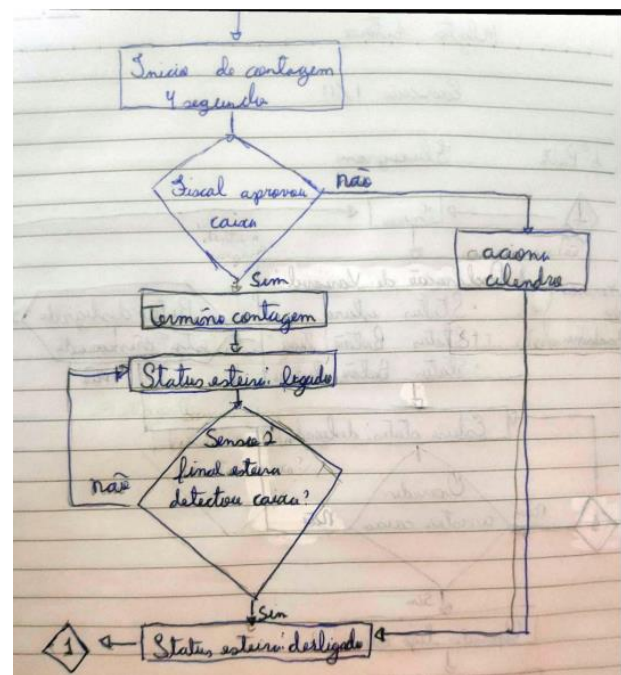 Início de contagem
4 segundos
Fiscal aprovou
caixa
não
aciona
cilendro
Sim
Termino contagem
Status esteira: ligado
Sensor 2
final esteira
detectou caixa?
não
Sim
Status esteira: desligado
1